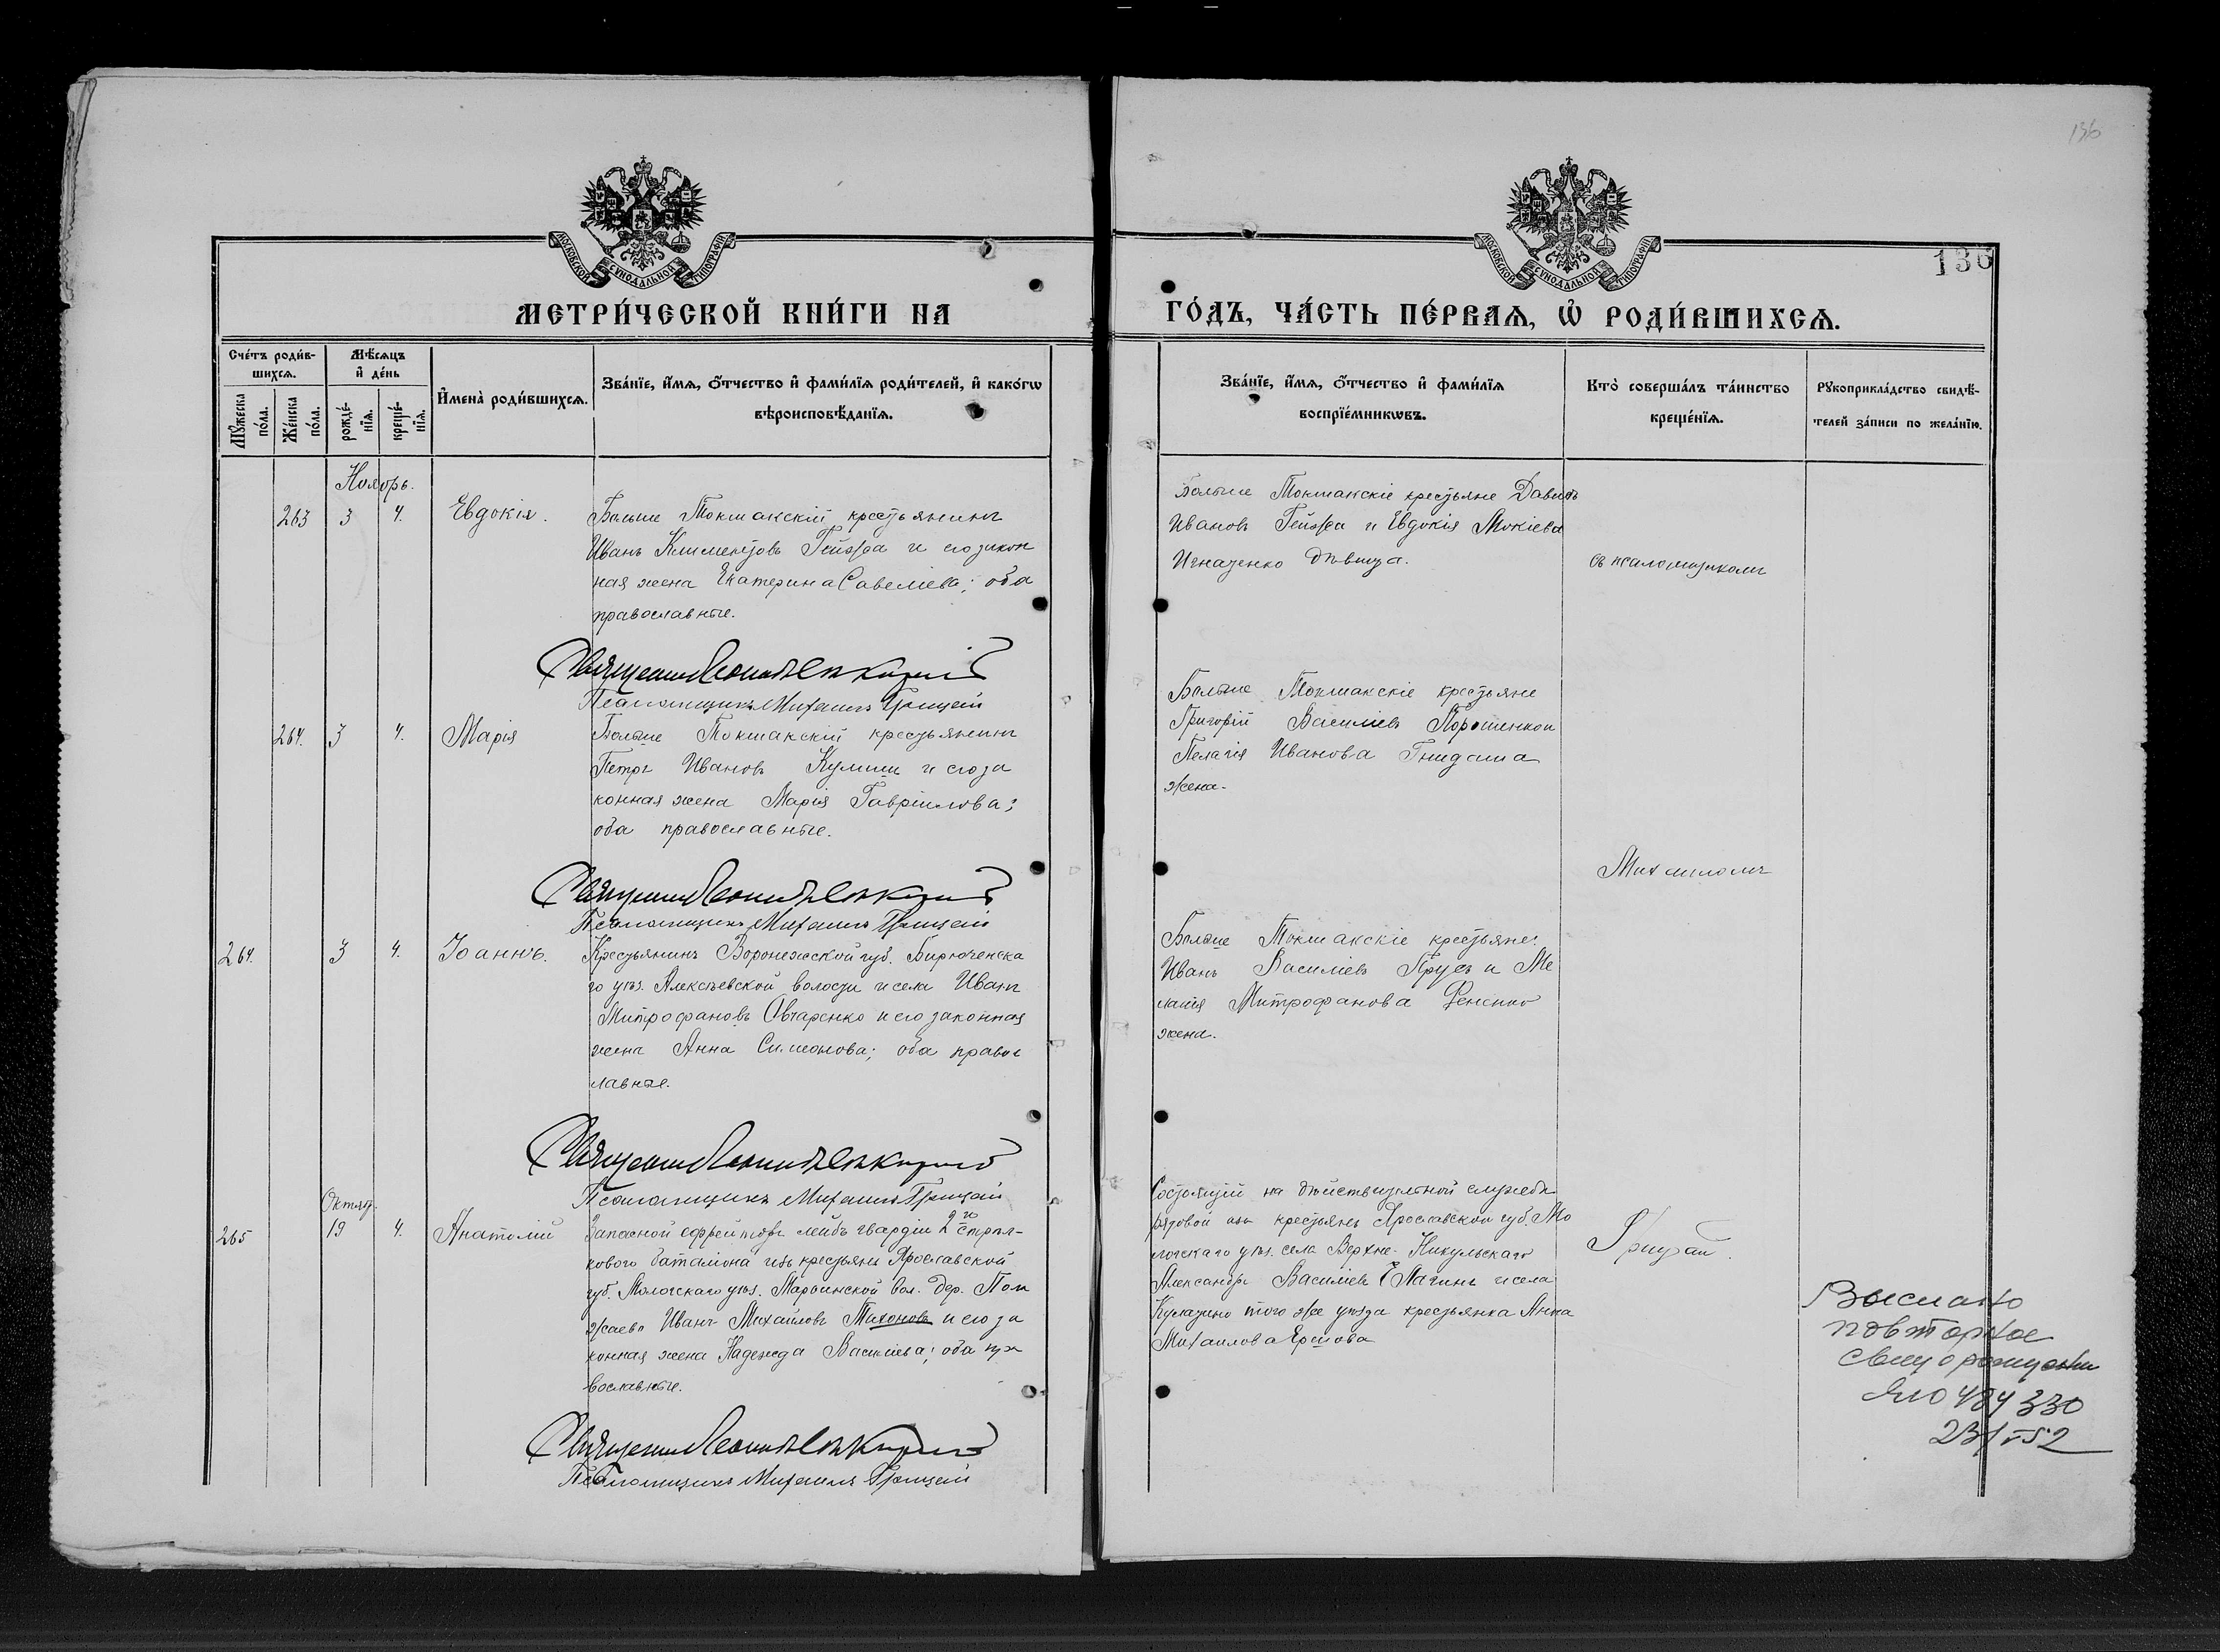 136
МОСКОВСКОЙ СѴНОДАЛЬНОЙ ТИПОГРАФІИ
МОСКОВСКОЙ СѴНОДАЛЬНОЙ ТИПОГРАФІИ
136
МЕТРИ́ЧЕСКОЙ КНИ́ГИ НА
ГО́ДЪ, ЧА́СТЬ ПЕ́РВАѦ, Ѡ҆ РОДИ́ВШИХСѦ.
Сче́тъ роди́в-
шихсѧ.
Мꙋ́жеска по́ла.
Же́нска по́ла.
Мѣ́сѧцъ
и҆ де́нь
рожде́-
нїѧ.
креще́-
нїѧ.
И҆мена̀ роди́вшихсѧ.
Зва́нїе, и҆́мѧ, ѻ҆́тчество и҆ фами́лїѧ роди́телей, и҆ како́гѡ
вѣроисповѣ́данїѧ.
Зва́нїе, и҆́мѧ, ѻ҆́тчество и҆ фами́лїѧ
воспрїе́мникѡвъ.
Кто̀ соверша́лъ та́инство
креще́нїѧ.
Рꙋкоприкла́дство свидѣ́-
телей за́писи по жела́нїю.
Ноябрь.
263 3 4. Евдокія.
Больше Токмакскій крестьянинъ
Иванъ Климентовъ и его закон
ная жена Екатерина Савеліева; оба
православные.
Псаломщикъ Михаилъ Грицай
Больше Токмакскіе крестьяне Давидъ
Ивановъ и Евдокія Мокіева
Игнатенко дѣвица.
съ псаломщикомъ
264. 3 4. Марія
Больше Токмакскій крестьянинъ
Петръ Ивановъ и его за
конная жена Марія Гавріилова;
оба православные.
Псаломщикъ Михаилъ Грицай
Больше Токмакскіе крестьяне
Григорій Василіевъ
Пелагія Иванова
жена.
Михаиломъ
264. 3 4. Іоаннъ.
Крестьянинъ Воронежской губ. Бирюченска
го уѣз. Алексѣевской волости и села Иванъ
Митрофановъ Овчаренко и его законная
жена Анна Симонова; оба правос
лавные.
Псаломщикъ Михаилъ Грицай
Больше Токмакскіе крестьяне:
Иванъ Василіевъ Прусъ и Ме
ланія Митрофанова
жена.
Октяб.
265 19 4. Анатолій
Запасной ефрейторъ лейбъ гвардіи 2го стрѣл-
кового баталіона изъ крестьянъ Ярославской
губ. Мологскаго уѣз. Марьинской вол. дер. Пом
жаево Иванъ Михайловъ Тихоновъ и его за
конная жена Надежда Василіева; оба пра
вославные.
Псаломщикъ Михаилъ Грицай
Состоящій на дѣйствительной службѣ
рядовой изъ крестьянъ Ярославской губ. Мо
логскаго уѣз. села Верхне-Никульскаго
Александръ Василіевъ Елагинъ и села
того же уѣзда крестьянка Анна
Михаилова Ершова
Грицай.
Выслано
повторное
свид о рожден
ЯЮ 484330
23/V-52